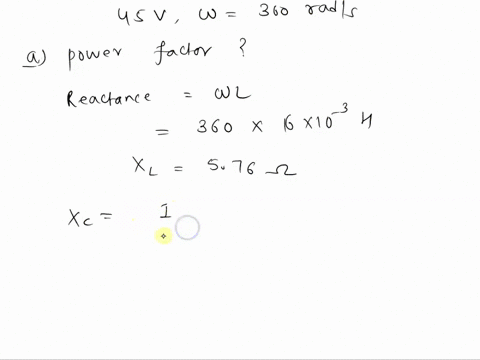 45 V, ω = 360 rad/s
a) power factor ?
Reactance = ωL
= 360 × 16 × 10⁻³ H
X_L = 5.76 Ω
X_C = 1